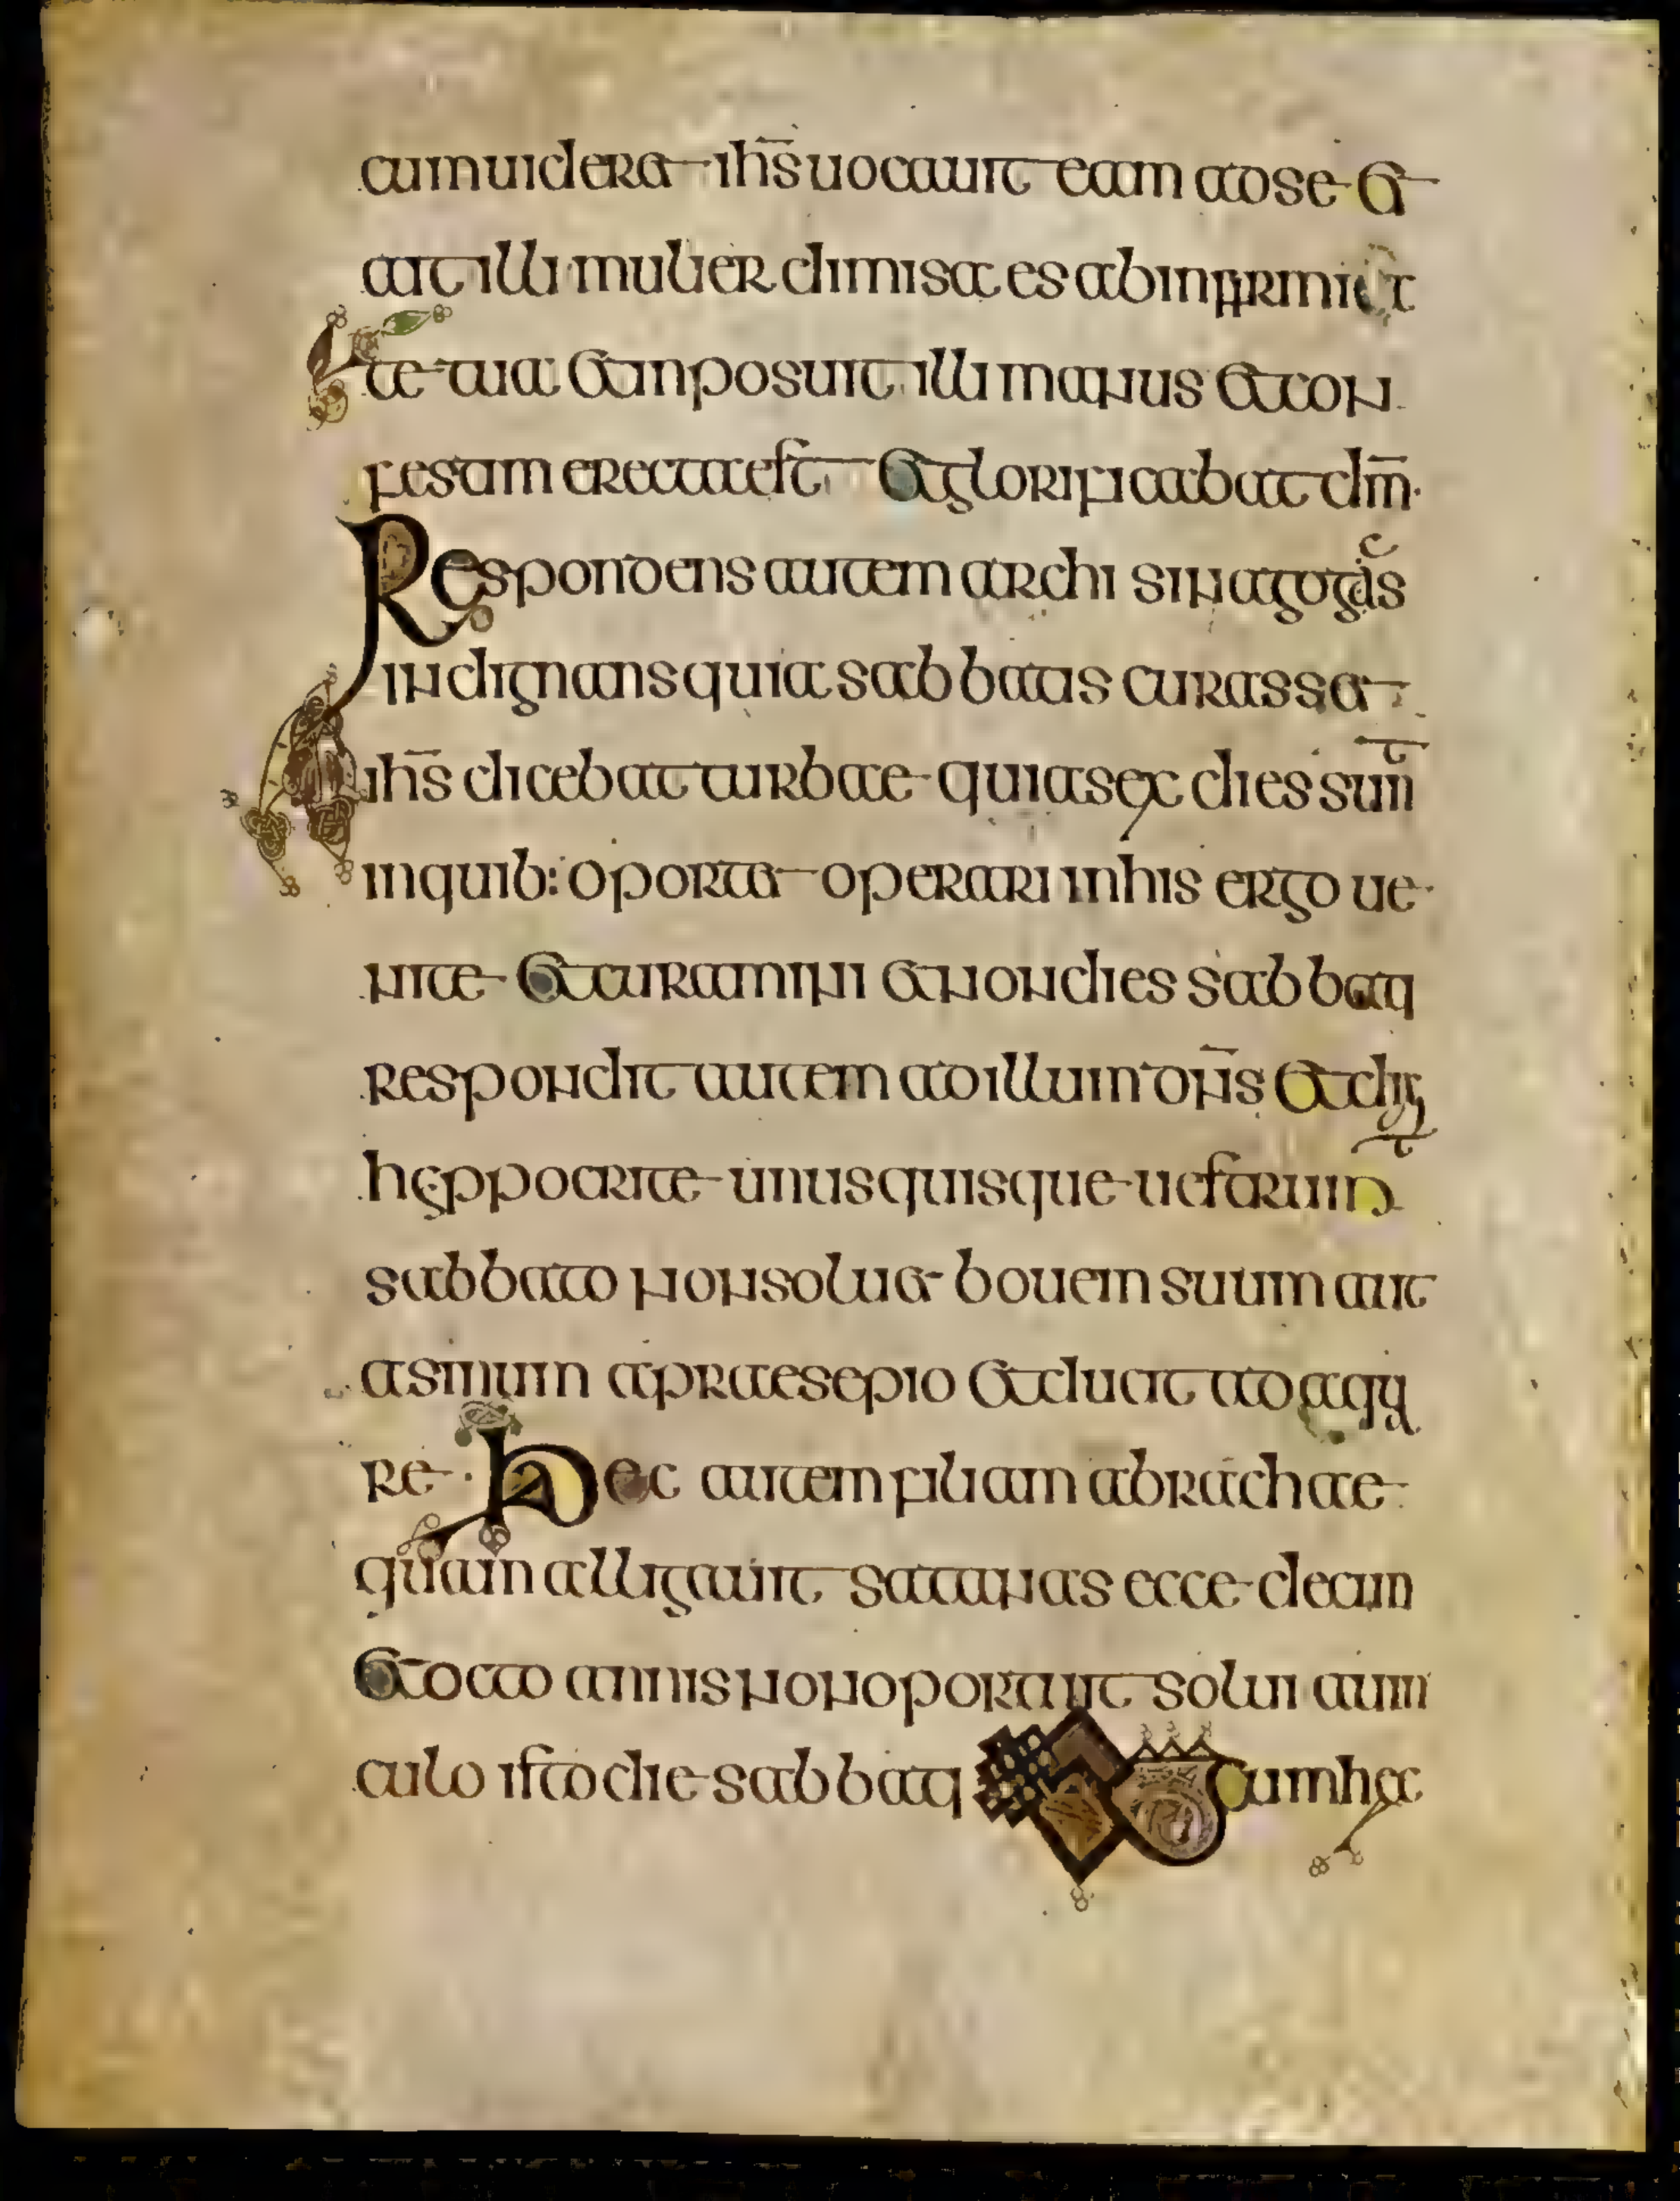 cum uideret ihs uocauit eam ad se et
ait illi mulier dimisa es ab infirmita
te tua et inposuit illi manus et con
festim erecta est et glorificabat dm
Respondens autem archi sinagogus
indignans quia sabbatis curasset
ihs dicebat turbae quia sex dies sunt
in quib: oportet operari in his ergo ue
nite et curamini et non dies sabbati
respondit autem ad illum dns et dixit
hyppocritae unusquisque uestrum
sabbato non soluet bouem suum aut
asinum a praesepio et ducit ad aqua
re Hec autem filiam abrachae
quam alligauit satanas ecce decim
et octo annis non oportuit solui a uin
culo isto die sabbati Cum hec